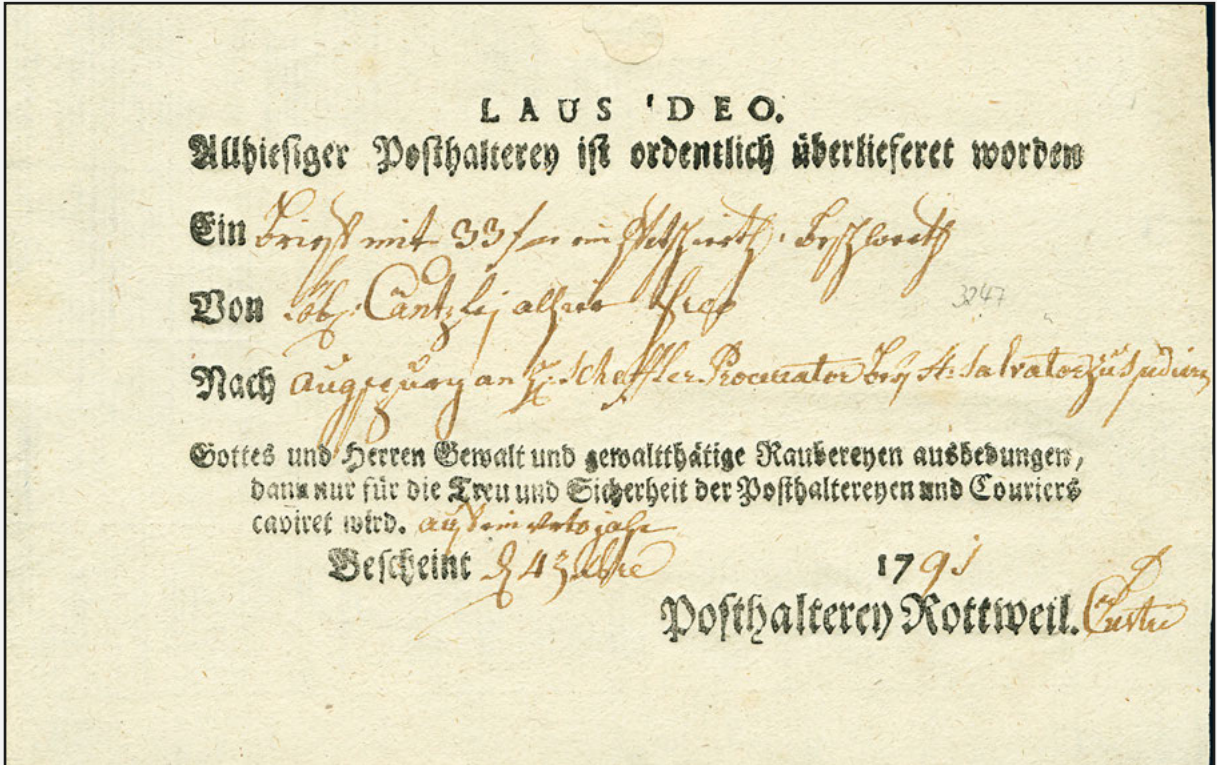 LAUS 'DEO.
Allhiesiger Posthalterey ist ordentlich überlieferet worden
Ein Brieff mit 33 f
Von Löbl. Cantzley allhier
3247
Nach Augspurg an H. Scheffler Procurator bey St. Salvator zu
Gottes und Herren Gewalt und gewaltthätige Raubereyen ausbedungen,
dann nur für die Treu und Sicherheit der Posthaltereyen und Couriers
caviret wird. auff ein Jahr
Bescheint d 4 1791
Posthalterey Rottweil.